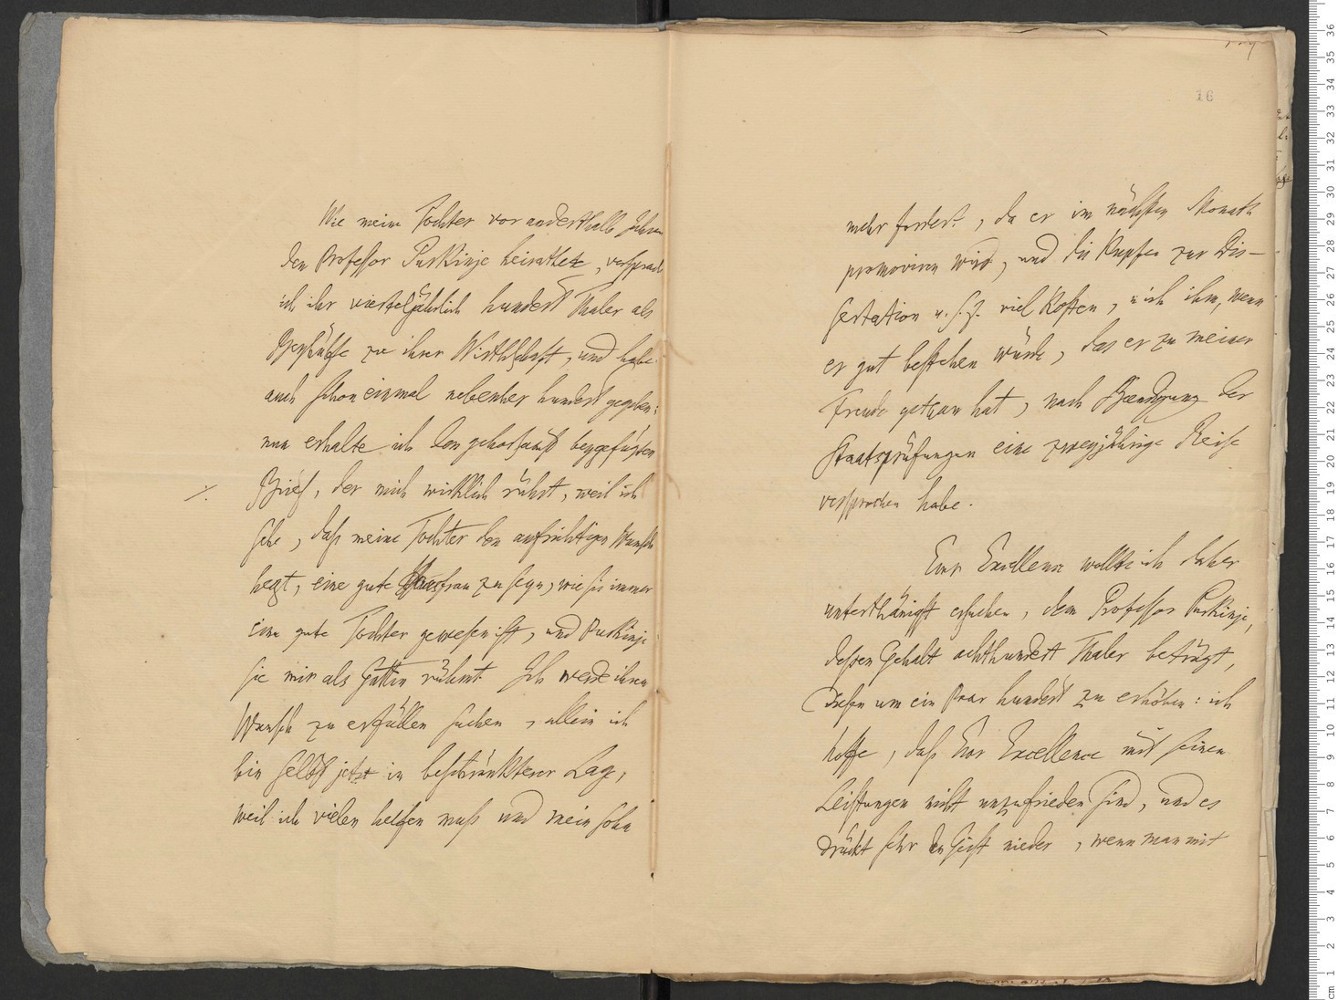 Wie meine Tochter vor anderthalb Jahren
den Professor Purkinje heirathete, versprach
ich ihr vierteljährlich hundert Thaler als
Beyhülfe zu ihrer Wirthschaft, und habe
auch schon einmal nebenher hundert gegeben:
nun erhalte ich den gehorsamst beygefügten
Brief, der mich wirklich rührt, weil ich
sehe, daß meine Tochter den aufrichtigen Wunsch
hegt, eine gute Hausfrau zu seyn, wie sie immer
eine gute Tochter gewesen ist, und Purkinje
sie mir als Gattin rühmt. Ich werde ihren
Wunsch zu erfüllen suchen, allein ich
bin selbst jetzt in beschränkterer Lage,
weil ich vielen helfen muß und mein Sohn
16
mehr fordert, da er im nächsten Monath
promoviren wird, und die Kupfer zur Dis-
sertation u.s.f. viel kosten, u ich ihm, wenn
er gut bestehen würde, das er zu meiner
Freude gethan hat, nach Beendigung der
Staatsprüfungen eine zweyjährige Reise
versprochen habe.
Eure Excellence wollte ich daher
unterthänigst ersuchen, dem Professor Purkinje,
dessen Gehalt achthundert Thaler beträgt,
diesen um ein Paar hundert zu erhöhen: ich
hoffe, daß Eure Excellence mit seinen
Leistungen nicht unzufrieden sind, und es
drückt sehr den Geist nieder, wenn man mit